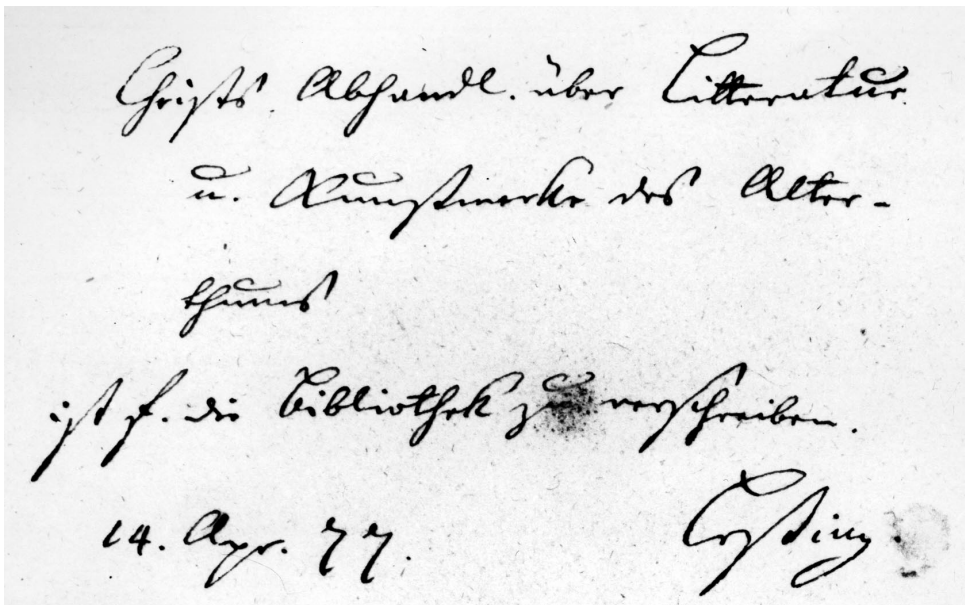 Christs Abhandl. über Litteratur
u. Kunstwerke des Alter-
thums
ist f. die Bibliothek zu verschreiben.
14. Apr. 77.
Leßing.